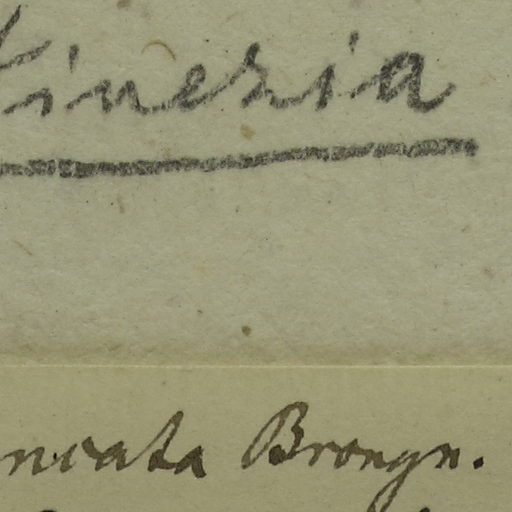 inezia
ncata Brongn.